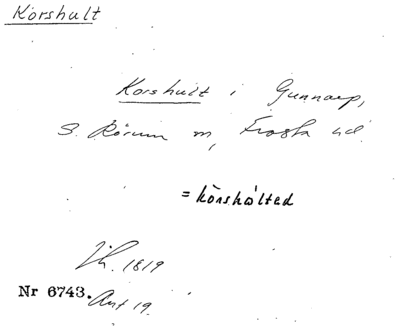 Korshult
Korshult i Gunnarp,
S. Rörum sn, Frosta hd.
= kòrshúlted
1819
Nr 6743. Ant 19.